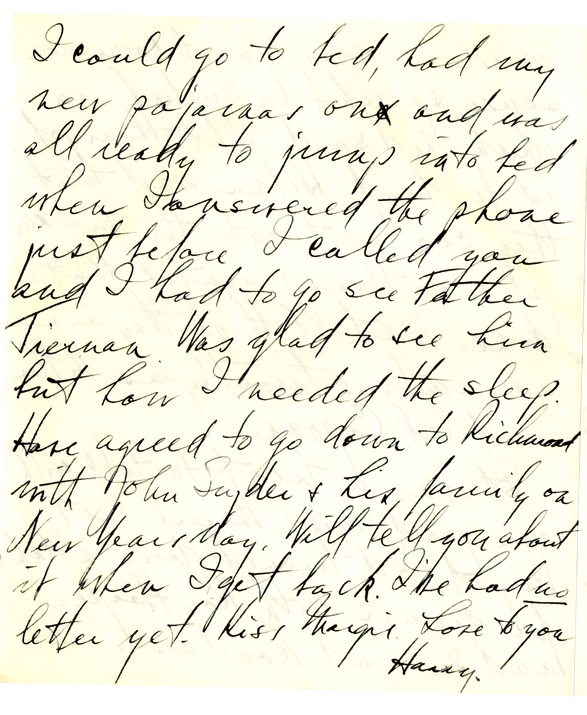 I could go to bed, had my
new pajamas on and was
all ready to jump into bed
when I answered the phone
just before I called you
and I had to go see Father
Tiernan Was glad to see him
but how I needed the sleep.
Have agreed to go down to Richmond
with John Snyder & his family on
New Years day. Will tell you about
it when I get back. I've had no
letter yet. Kiss Margie. Love to you
Harry.